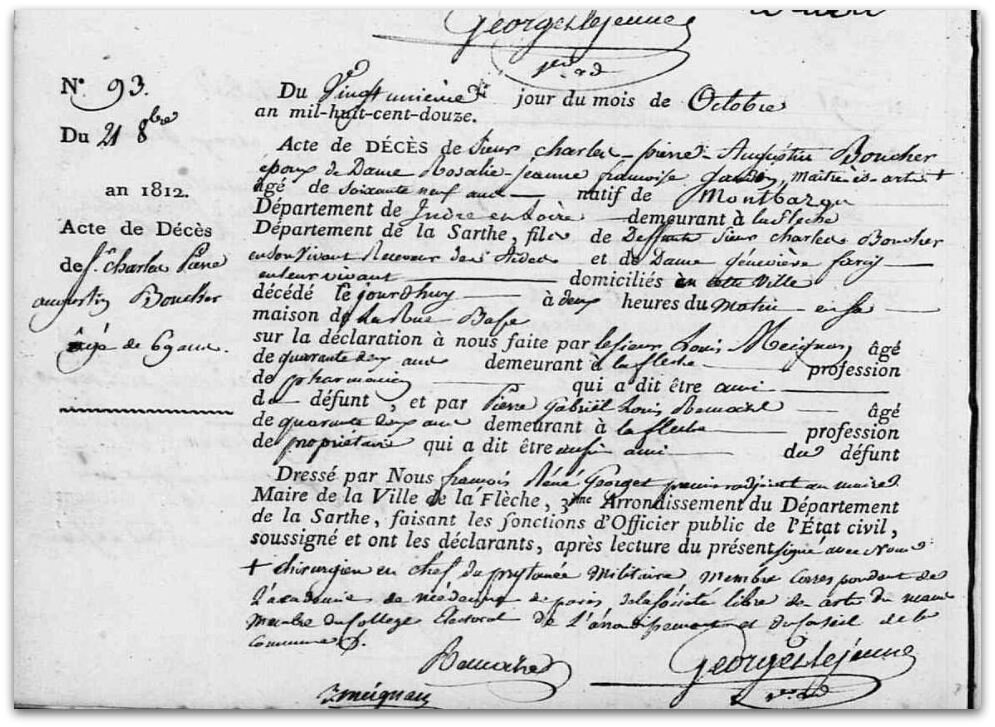 Georget lejeune
N.º 93.
Du 21 8bre
an 1812.
Acte de Décès
de Sr. Charles Pierre
augustin Boucher
âgé de 69 ans.
Du Vingt unième jour du mois de Octobre
an mil-huit-cent-douze.
Acte de DÉCÈS de Sieur charles-pierre-Augustin Boucher
époux de Dame Rosalie-jeanne françoise, Maitre-ès-arts +
âgé de soixante neuf ans natif de Montbazon
Département de Indre et Loire demeurant à la fleche
Département de la Sarthe, fils de Deffunts Sieur charles Boucher
en son Vivant Receveur des Aides et de Dame géneviève farcy
en leur vivant domiciliés en cette Ville
décédé le jourd'huy à deux heures du Matin en sa
maison de La Rue Basse
sur la déclaration à nous faite par le sieur Louis Meignan âgé
de quarante deux ans demeurant à la fleche profession
de pharmacien qui a dit être ami
du défunt, et par Pierre Gabriël Louis âgé
de quarante deux ans demeurant à la fleche profession
de propriétaire qui a dit être aussi ami du défunt
Dressé par Nous françois René Georget premier adjoint au maire
Maire de la Ville de la Flèche, 3me Arrondissement du Département
de la Sarthe, faisant les fonctions d'Officier public de l'État civil,
soussigné et ont les déclarants, après lecture du présent signé avec Nous
+ chirurgien en chef du prytanée Militaire, membre correspondant de
L'academie de medecine de paris de la société libre des arts du mans
Membre du College Electoral de L'arrondissement et du Conseil de la
Commune
Georget lejeune
L meignan